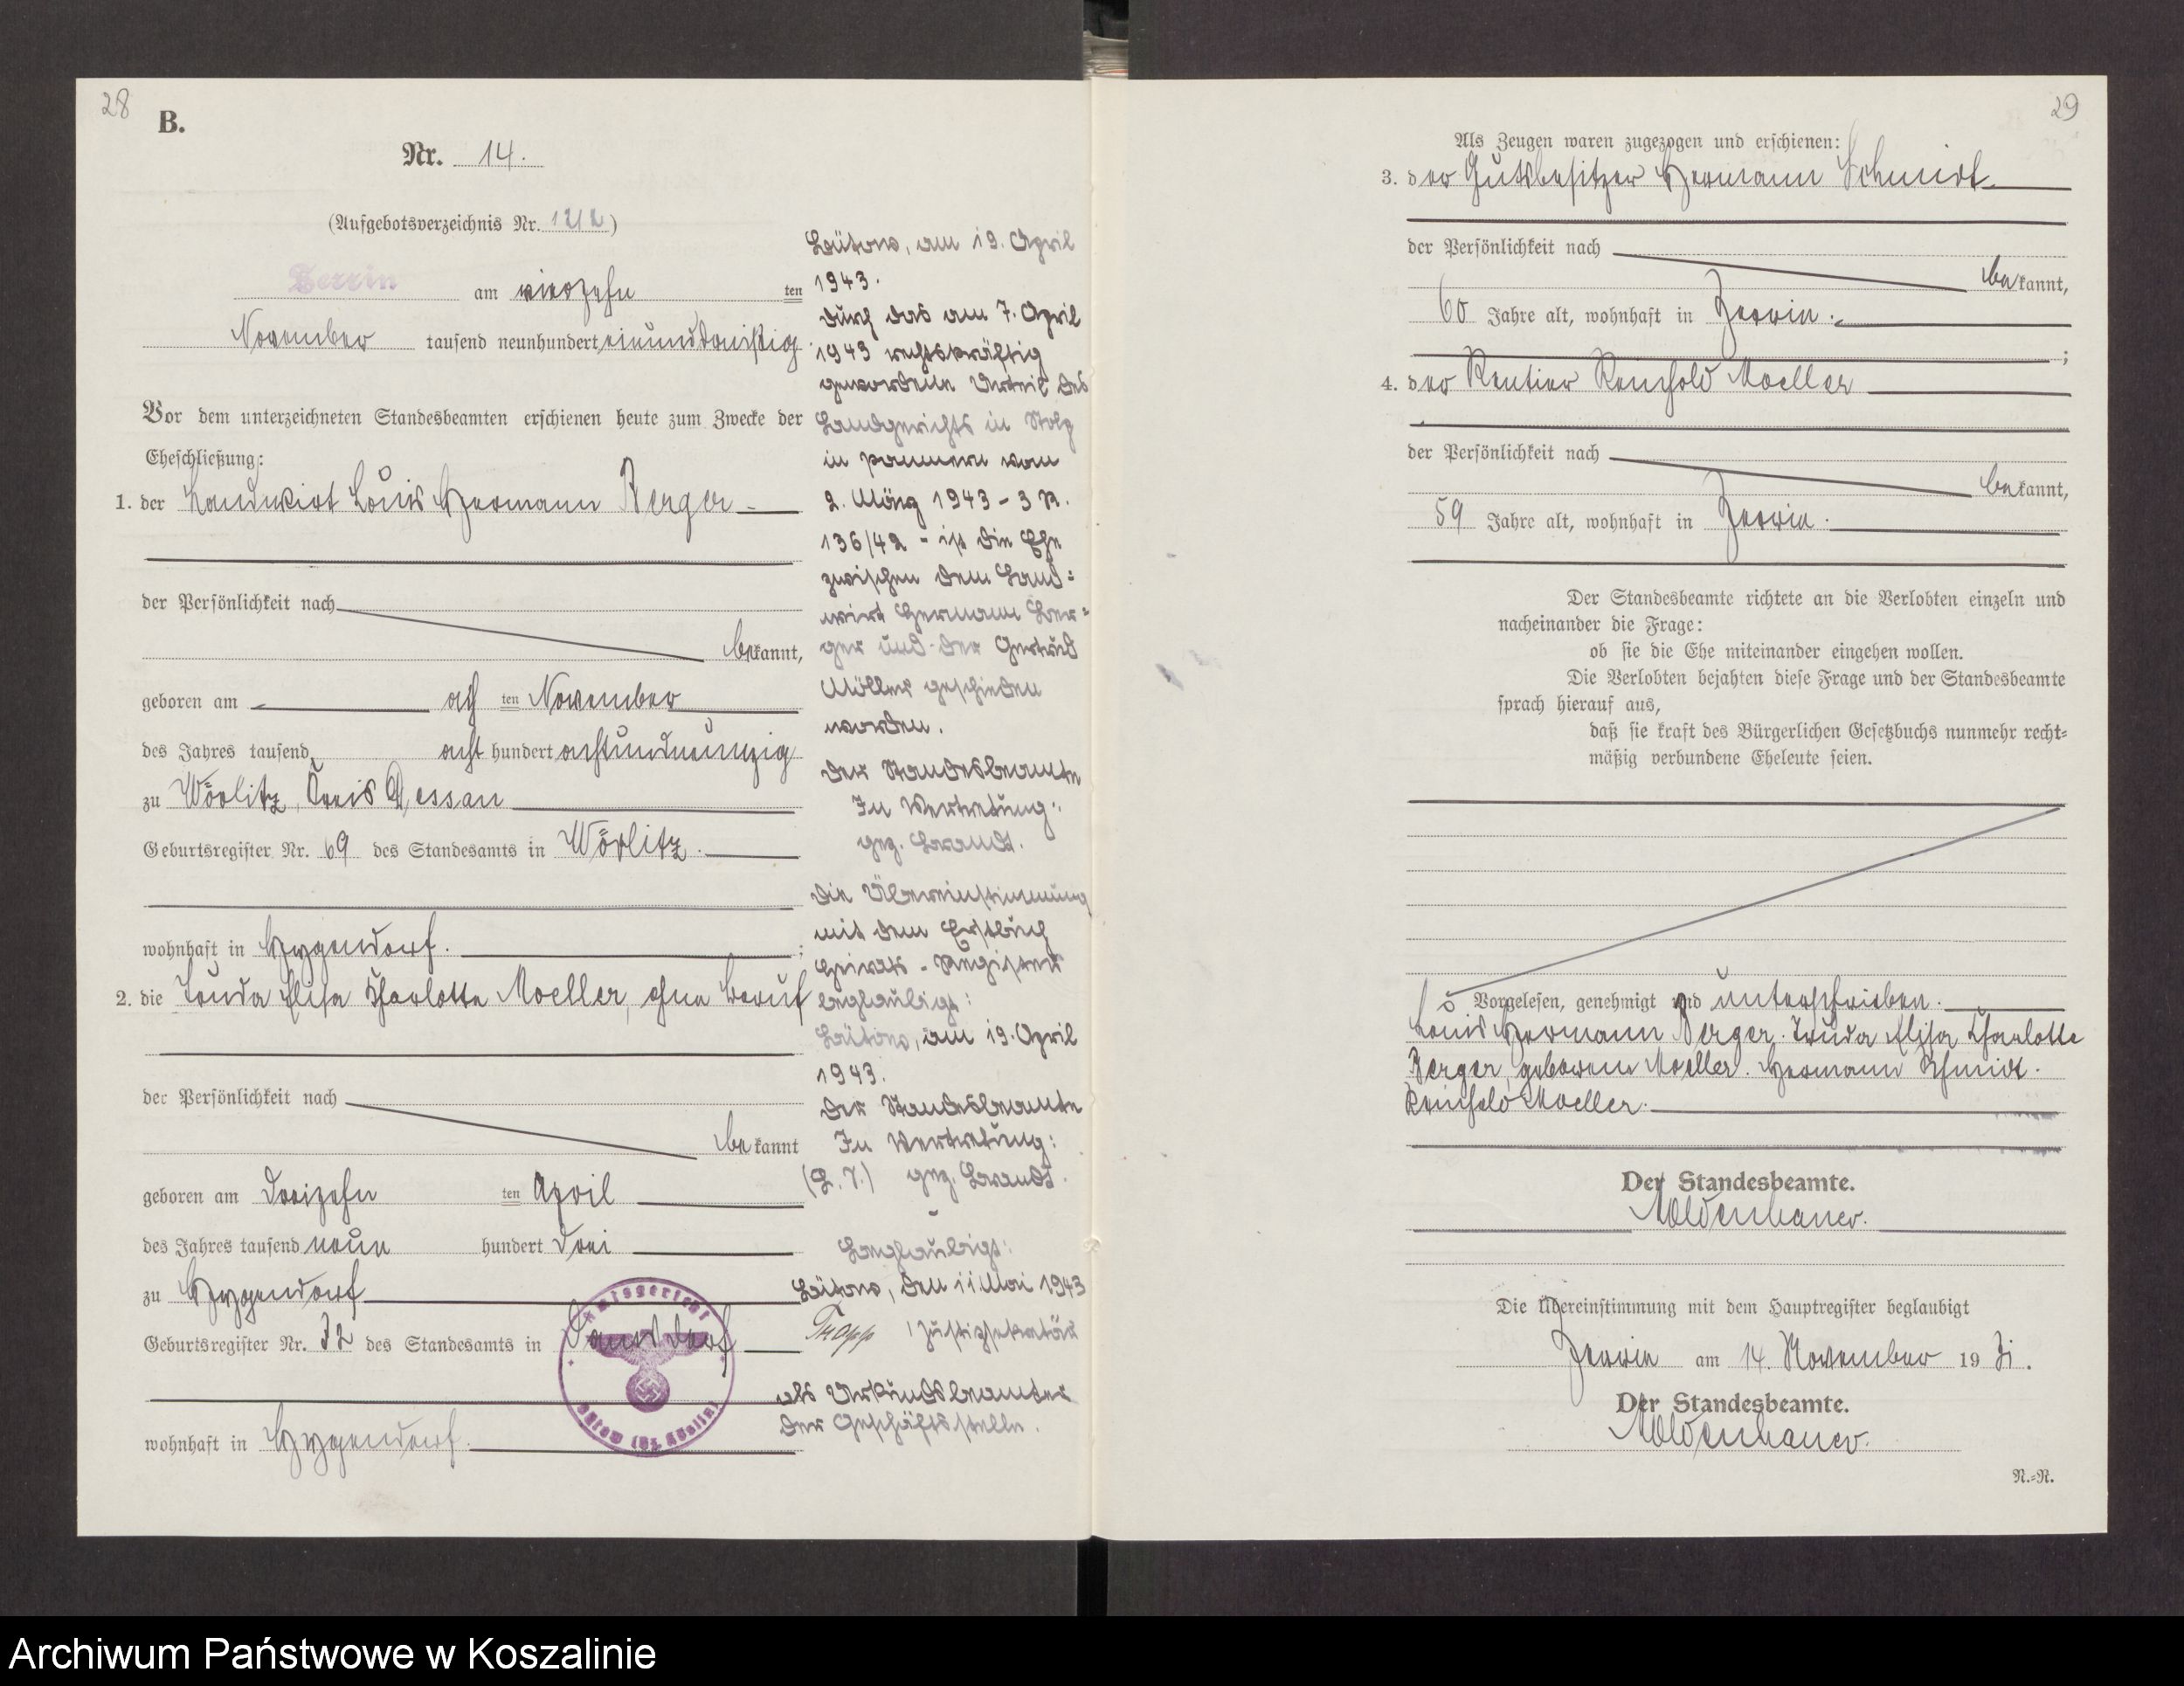 28
B.
Nr. 14.
(Aufgebotsverzeichnis Nr. 12/2)
am vierzehn ten
November tausend neunhundert einunddreißig
Vor dem unterzeichneten Standesbeamten erschienen heute zum Zwecke der
Eheschließung:
1. der Landwirt Louis Hermann Berger
der Persönlichkeit nach
bekannt,
geboren am acht ten November
des Jahres tausend acht hundert achtundneunzig
zu Wörlitz, Kreis Dessau
Geburtsregister Nr. 69 des Standesamts in Wörlitz.
wohnhaft in Hygendorf.;
2. die Truda Elisa Charlotte Moeller, ohne Beruf
der Persönlichkeit nach
bekannt
geboren am dreizehn ten April
des Jahres tausend neun hundert drei
zu Hygendorf
Geburtsregister Nr. 32 des Standesamts in
wohnhaft in Hygendorf.
Bütow, am 19. April
1943.
Durch das am 7. April
1943 rechtskräftig
gewordene Urteil des
Landgerichts in Stolp
in Pommern vom
2. März 1943 - 3 R.
136/42 - ist die Ehe
zwischen dem Land=
wirt Hermann Ber=
ger und der Gertrud
Möller geschieden
worden.
Der Standesbeamte
In Vertretung:
gez. Brandt.
Die Übereinstimmung
mit dem Erstbuch
Heirats-Register
beglaubigt:
Bütow, am 19. April
1943.
Der Standesbeamte
In Vertretung:
(L. S.) gez. Brandt.
Beglaubigt:
Bütow, den 11 Mai 1943
Justizsekretär
als Urkundsbeamter
der Geschäftsstelle.
Amtsgericht
Bütow (Bz. Köslin)
29
Als Zeugen waren zugezogen und erschienen:
3. der Gutsbesitzer Hermann Schmidt
der Persönlichkeit nach
bekannt,
60 Jahre alt, wohnhaft in Zerrin.
;
4. der Rentier Reinhold Moeller
der Persönlichkeit nach
bekannt,
59 Jahre alt, wohnhaft in Zerrin.
Der Standesbeamte richtete an die Verlobten einzeln und
nacheinander die Frage:
ob sie die Ehe miteinander eingehen wollen.
Die Verlobten bejahten diese Frage und der Standesbeamte
sprach hierauf aus,
daß sie kraft des Bürgerlichen Gesetzbuchs nunmehr recht=
mäßig verbundene Eheleute seien.
Vorgelesen, genehmigt und unterschrieben.
Louis Hermann Berger. Truda Elisa Charlotte
Berger, geborene Moeller. Hermann Schmidt.
Reinhold Moeller.
Der Standesbeamte.
Moldenhauer.
Die Übereinstimmung mit dem Hauptregister beglaubigt
Zerrin am 14. November 1931.
Der Standesbeamte.
Moldenhauer.
N.=R.
Archiwum Państwowe w Koszalinie